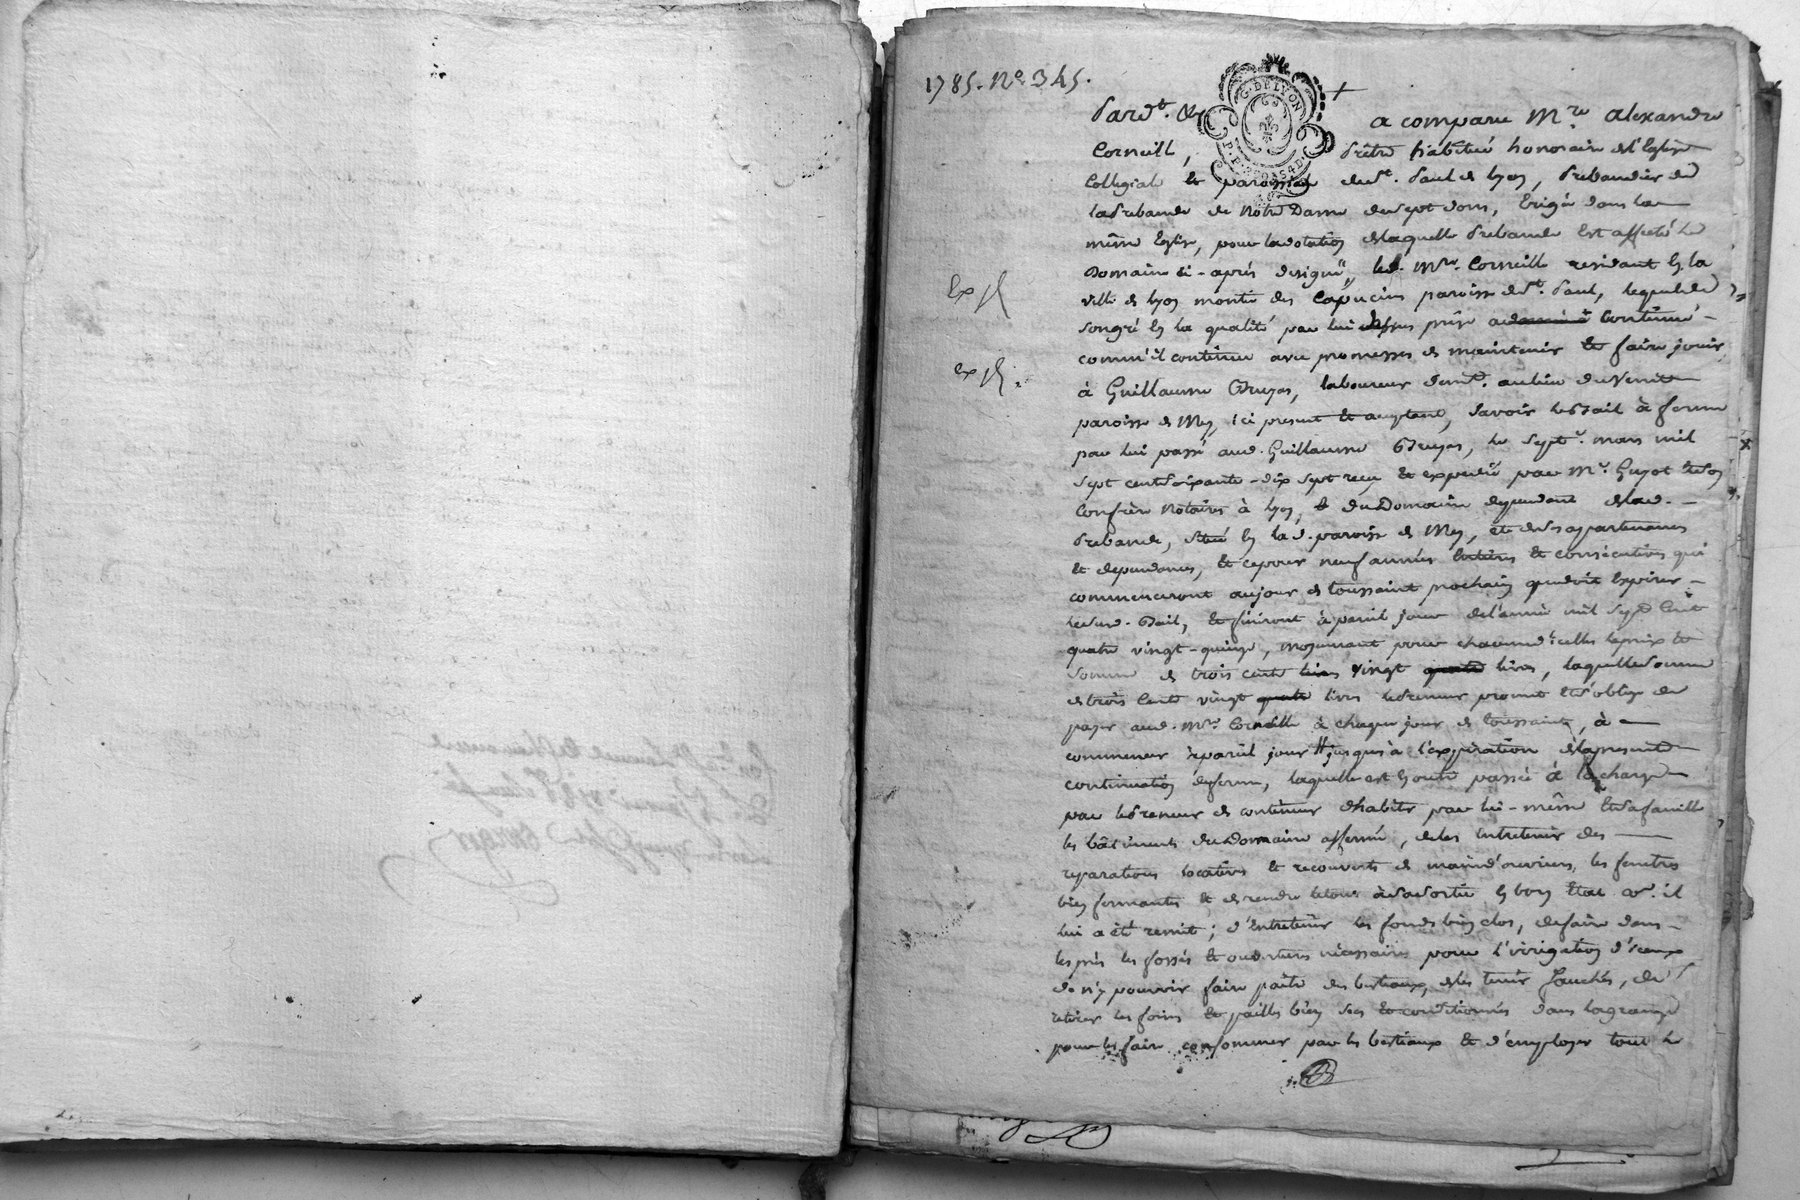 1785. No. 345.
G. DE LYON
Pard.t &c a comparu M.re alexandre
Corneille, Prêtre habitué honoraire de l'Eglise
Collegiale et paroissiale de St. Paul de Lyon, Prebandier de
la Prebande de Notre Dame de sept dons, Erigée dans la
même Eglise, pour la dotation de laquelle Prebande Est affecté le
Domaine ci-après designé, led. Mre. Corneille residant en la
ville de Lyon montée des Capucins paroisse de St. Paul, lequel de
son gré En la qualité par lui dessus prise a continué
comm'il continue avec promesses de maintenir et faire jouir
à Guillaume Bruyas, laboureur demt. au lieu du
paroisse de Mey, ici present et acceptant, savoir le Bail à ferme
par lui passé aud. Guillaume Bruyas, le sept mars mil
sept cent soixante-dix sept reçu et expedié par Me. Guyot et son
Confrère Notaires à Lyon, du Domaine dependant de lad.
Prebande, situé En lad. paroisse de Mey, et de ses appartenances
et dependances, et ce pour neuf années Entières et consécutives qui
commenceront au jour de toussaint prochain que doit Expirer
led. Bail, et finiront à pareil jour de l'année mil sept Cent
quatre vingt-quinze, moyennant pour chacune d'icelles le prix et
somme de trois cents vingt livres, laquelle somme
de trois Cents vingt livres le Preneur promet et s'oblige de
payer aud. Mre. Corneille à chaque jour de toussaint, à
commencer à pareil jour jusques à l'expiration de la presente
continuation de ferme, laquelle est En outre passée à la charge
par le Preneur de continuer d'habiter par lui-même et sa famille
les bâtiments du Domaine affermé, de les Entretenir des
reparations locatives et recouverts de main d'ouvriers, les fenetres
bien fermantes et de rendre le tout à sa sortie En bon Etat co. il
lui a été remit; d'Entretenir les fonds bien clos, de faire dans
les prés les fossés et ouvertures nécessaires pour l'irrigation d'iceux
de n'y pouvoir faire paître des bestiaux, de les tenir fauchés, de
retirer les foins et pailles bien secs et conditionnés dans la grange
pour les faire consommer par les bestiaux et d'employer tout le